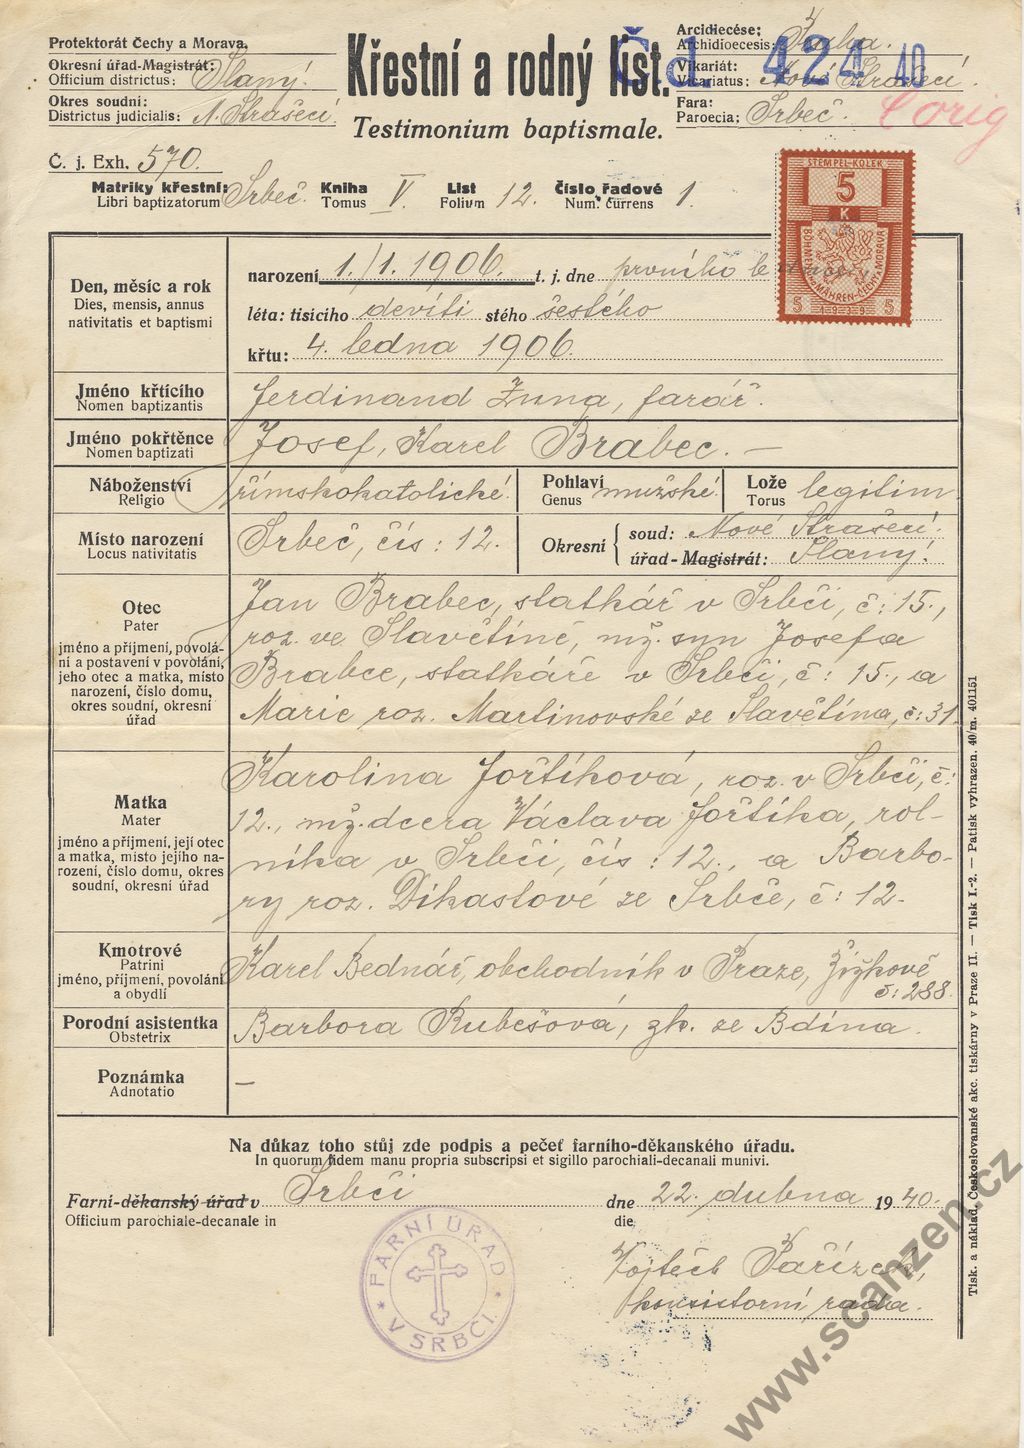 Protektorát Čechy a Morava.
Okresní úřad-Magistrát: Slaný!
Officium districtus:
Okres soudní: N. Strašecí
Districtus judicialis:
Č. j. Exh. 570.
Křestní a rodný list.
Testimonium baptismale.
Čd. 424 40
Arcidiecése: Praha.
Archidioecesis:
Vikariát: Nové Strašecí
Vicariatus:
Fara: Srbeč.
Paroecia:
Corig
Matriky křestní: Srbeč. Kniha V. List 12. Číslo řadové 1.
Libri baptizatorum Tomus Folium Num. currens
STEMPEL-KOLEK
5
K
BÖHMEN U. MÄHREN-ČECHY A MORAVA
5 1939 5
Den, měsíc a rok
Dies, mensis, annus
nativitatis et baptismi
narození 1./1. 1906. t. j. dne prvního ledna
léta: tisícího devíti stého šestého
křtu: 4. ledna 1906.
Jméno křtícího
Nomen baptizantis
Ferdinand Zuna, farář.
Jméno pokřtěnce
Nomen baptizati
Josef, Karel Brabec. —
Náboženství
Religio
římskokatolické.
Pohlaví
Genus
mužské.
Lože
Torus
legitim
Místo narození
Locus nativitatis
Srbeč, čís: 12.
Okresní { soud: Nové Strašecí.
úřad-Magistrát: Slaný!
Otec
Pater
jméno a příjmení, povolá-
ní a postavení v povolání,
jeho otec a matka, místo
narození, číslo domu,
okres soudní, okresní
úřad
Jan Brabec, statkář v Srbči, č: 15.,
roz. ve Slavětíně, mž. syn Josefa
Brabce, statkáře v Srbči, č: 15., a
Marie roz. Martinovské ze Slavětína, č: 31
Matka
Mater
jméno a příjmení, její otec
a matka, místo jejího na-
rození, číslo domu, okres
soudní, okresní úřad
Karolina Jořtíková, roz. v Srbči, č:
12., mž. dcera Václava Jořtíka, rol-
níka v Srbči, čís: 12., a Barbo-
ry roz. Dikastové ze Srbče, č: 12.
Kmotrové
Patrini
jméno, příjmení, povolání
a obydlí
Karel Bednář, obchodník v Praze, Žižkově
č: 288.
Porodní asistentka
Obstetrix
Barbora Rubešová, zk. ze Bdína.
Poznámka
Adnotatio
—
Na důkaz toho stůj zde podpis a pečeť farního-děkanského úřadu.
In quorum fidem manu propria subscripsi et sigillo parochiali-decanali munivi.
Farní-děkanský úřad v Srbči dne 22. dubna 1940.
Officium parochiale-decanale in die
FARNÍ ÚŘAD
V SRBČI
Vojtěch Pařízek,
konsistorní rada.
Tisk. a náklad. Československé akc. tiskárny v Praze II. — Tisk I.-2. — Patisk vyhrazen. 40/m. 401151
www.scanzen.cz